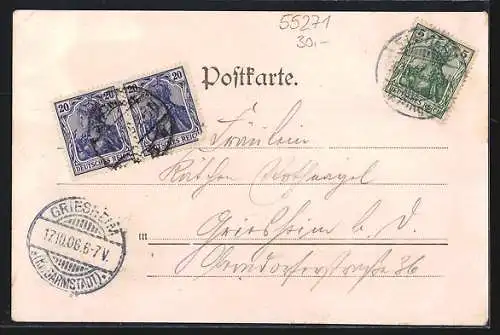 55271
30,-
5 5
DEUTSCHES REICH
20 20
DEUTSCHES REICH
20 20
DEUTSCHES REICH
Postkarte.
Fräulein
Käthchen Rothnagel
in Griesheim b. D.
Oberndorferstraße 36
GRIESHEIM
17.10.06.6-7V.
*(Kr. DARMSTADT)*